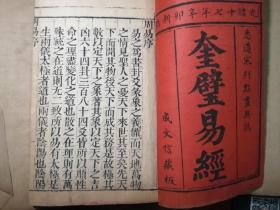 光緒十七年辛卯新鐫
悉遵宋刊點畫無訛
奎璧易經
成文信藏板
周易序
易之為書卦爻彖象之義備而天地萬物
之情見聖人之憂天下來世其至矣先天
下而開其物後天下而成其務是故極其
數以定天下之象著其象以定天下之吉
凶六十四卦三百八十四爻皆所以順性
命之理盡變化之道也散之在理則有萬
殊統之在道則无二致所以易有太極是
生兩儀太極者道也兩儀者陰陽也陰陽
周易序